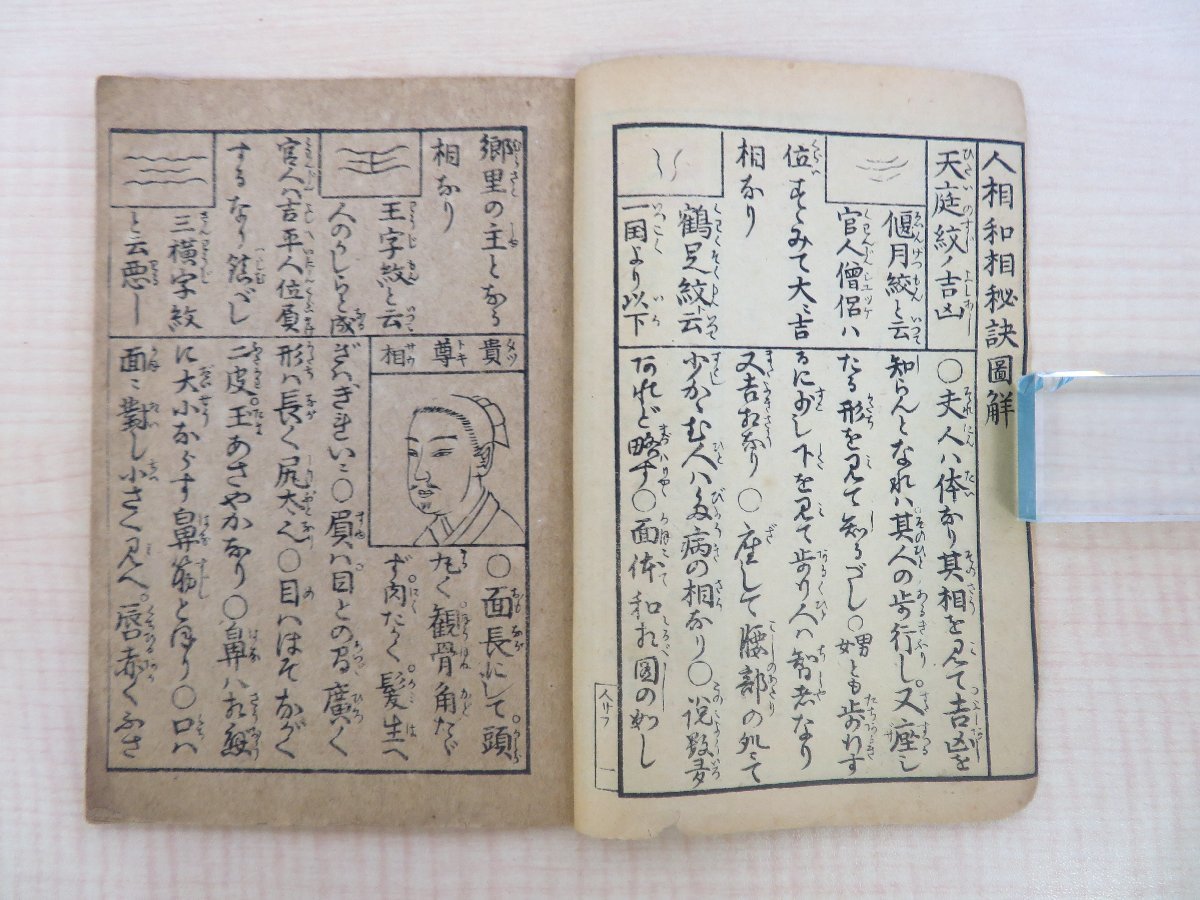 人相和相秘訣圖解
天庭紋ノ吉凶
偃月紋と云
官人僧侶ハ
位すゝみて大ニ吉
相なり
鶴足紋ト云
一国より以下
○夫人ハ体なり其相を見て吉凶を
知らんとなれハ其人の歩行し又座し
たる形を見て知るべし○男女とも歩行す
るに少し下を見て歩り人ハ智者なり
又吉相なり○座して腰部の処にて
少かゞむ人ハ多病の相なり○説数多
あれど略す○面体和相図の如し
人サフ 一
郷里の主となる
相なり
王字紋と云
人のかしらと成
官人ハ吉平人位負
するなり慎べし
三横字紋
と云悪し
貴尊相
○面長にして頭
丸く観骨角たゝ
ず肉たかく髪生へ
ざハぎれいニ○眉ハ目との間廣く
形ハ長く尻太く○目ハほそながく
二皮玉あさやかなり○鼻ハ
に大小ならす鼻筋とほり○口ハ
面ニ對し小さく見へ唇赤くふさ